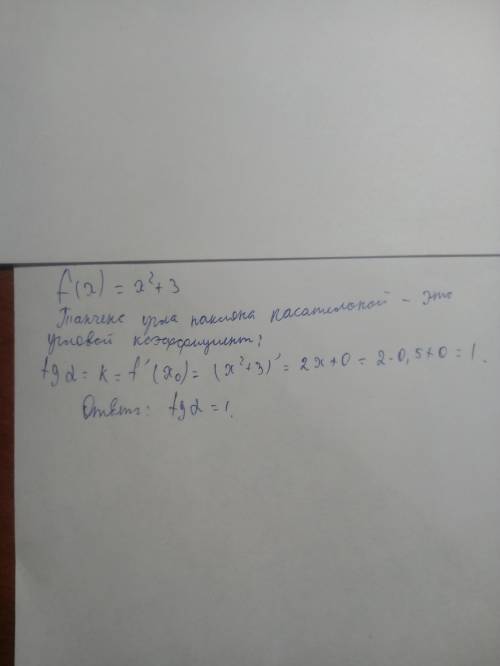 f(x) = x² + 3
Тангенс угла наклона касательной - это
угловой коэффициент:
tg α = k = f'(x₀) = (x²+3)' = 2x+0 = 2·0,5+0 = 1.
Ответ: tg α = 1.